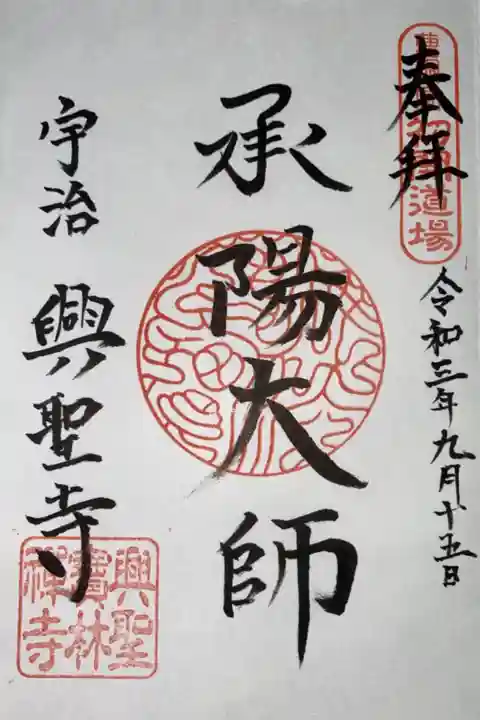 奉拝
道場
令和三年九月十五日
承陽大師
宇治 興聖寺
興聖
寶林
禅寺